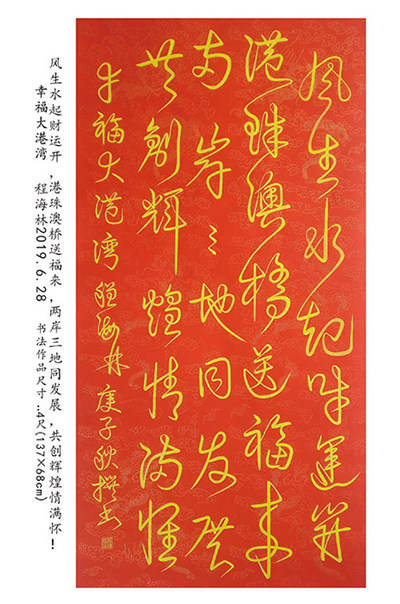 风生水起财運開
港珠澳橋送福来
两岸三地同发展
共創輝煌情满怀
幸福大港湾 程海林 庚子秋撰书
风生水起财运开,港珠澳桥送福来,两岸三地同发展,共创辉煌情满怀!
幸福大港湾 程海林2019.6.28 书法作品尺寸:4尺(137×68cm)